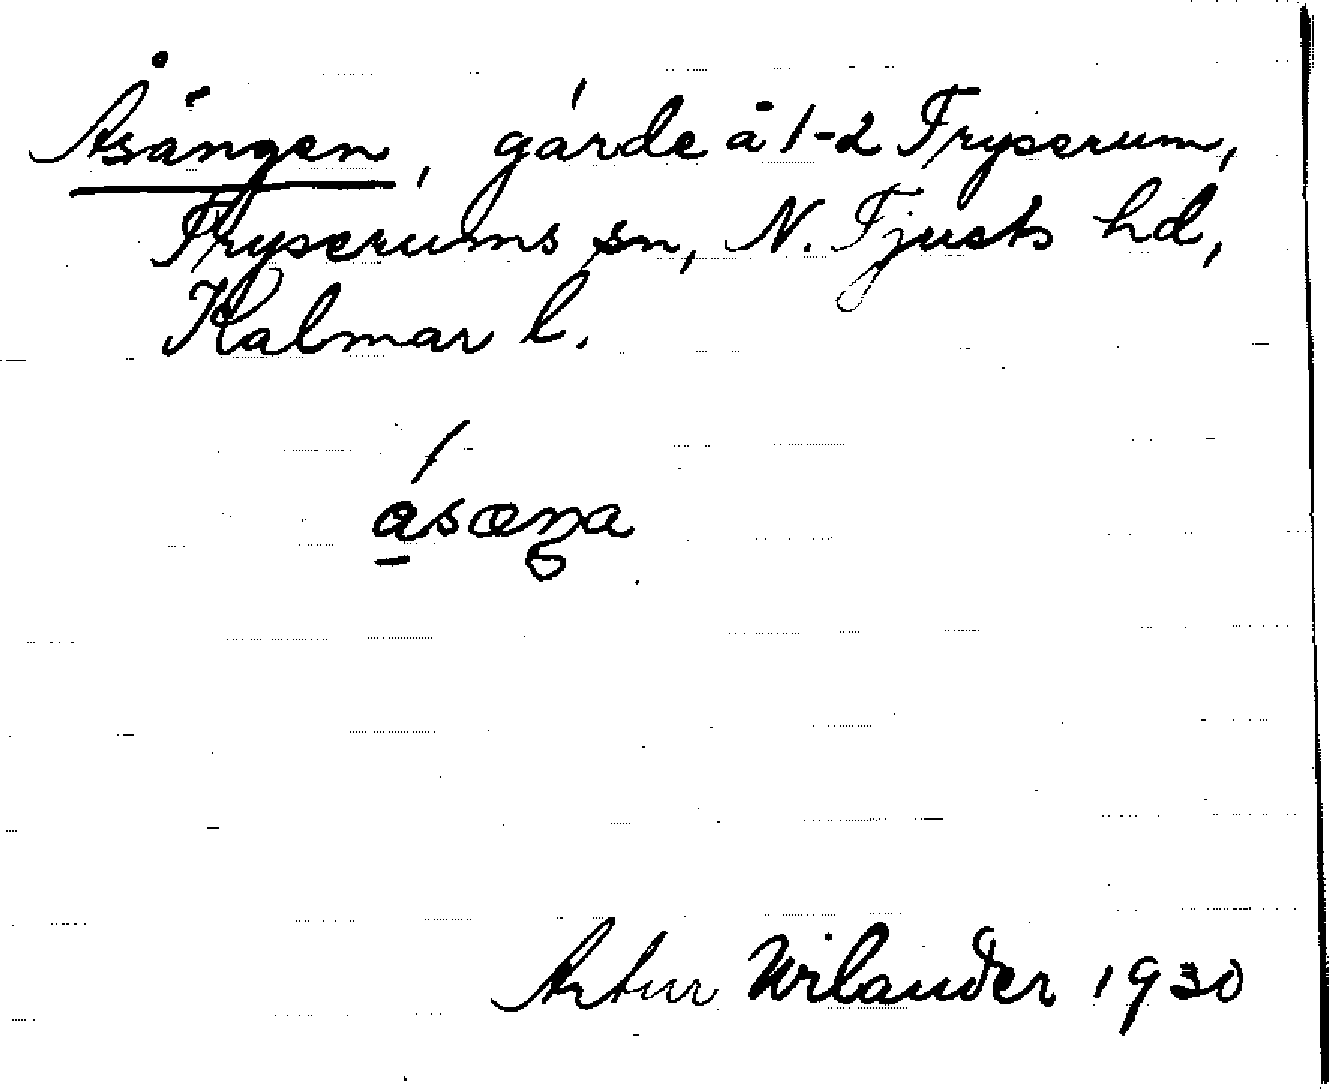 Åsängen, gärde å 1-2 Fryserum,
Fryserums sn, N. Tjusts hd,
Kalmar l.
åsæŋa
Artur Wilander 1930